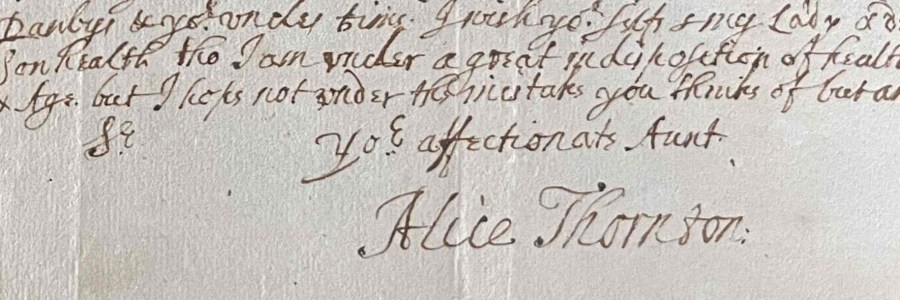 Danbys & yor: vncles time. I wish yor: selfe & my Lady &
Son health tho I am vnder a great indisposition of health
& Age. but I hope not vnder the mistake you thinke of but am
Sr:
Yor: affectionate Aunt.
Alice Thornton: